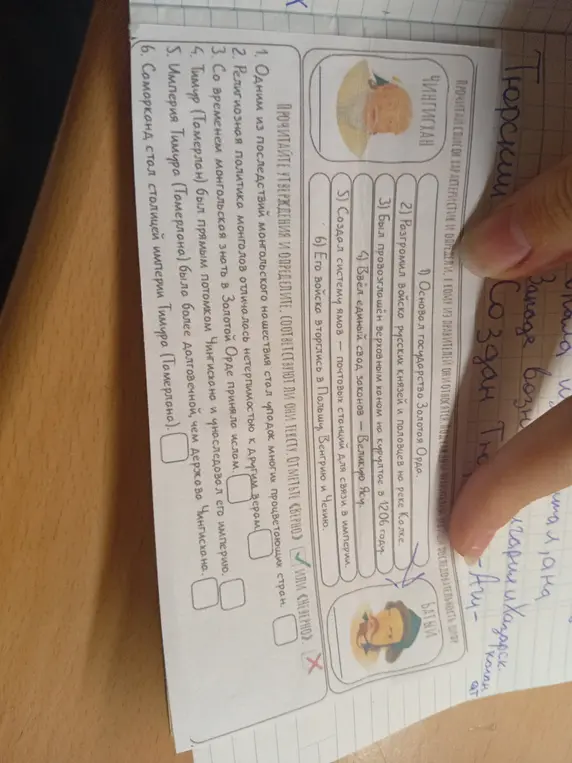 ПРОЧИТАЙ СПИСОК ХАРАКТЕРИСТИК И ОПРЕДЕЛИ, К КОМУ ИЗ ПРАВИТЕЛЕЙ ОНИ ОТНОСЯТСЯ.
ПОСЛЕДОВАТЕЛЬНОСТЬ ЦИФР
ЧИНГИСХАН
БАТЫЙ
1) Основал государство Золотая Орда.
2) Разгромил войско русских князей и половцев на реке Калке.
3) Был провозглашён верховным ханом на курултае в 1206 году.
4) Ввёл единый свод законов — Великую Ясу.
5) Создал систему ямов — почтовых станций для связи в империи.
6) Его войска вторглись в Польшу, Венгрию и Чехию.
ПРОЧИТАЙТЕ УТВЕРЖДЕНИЯ И ОПРЕДЕЛИТЕ, СООТВЕТСТВУЮТ ЛИ ОНИ ТЕКСТУ. ОТМЕТЬТЕ «ВЕРНО» ✓ ИЛИ «НЕВЕРНО» X
1. Одним из последствий монгольского нашествия стал упадок многих процветающих стран.
2. Религиозная политика монголов отличалась нетерпимостью к другим верам.
3. Со временем монгольская знать в Золотой Орде приняла ислам.
4. Тимур (Тамерлан) был прямым потомком Чингисхана и унаследовал его империю.
5. Империя Тимура (Тамерлана) была более долговечной, чем держава Чингисхана.
6. Самарканд стал столицей империи Тимура (Тамерлана).
Тюрский
Создан
Западе возн